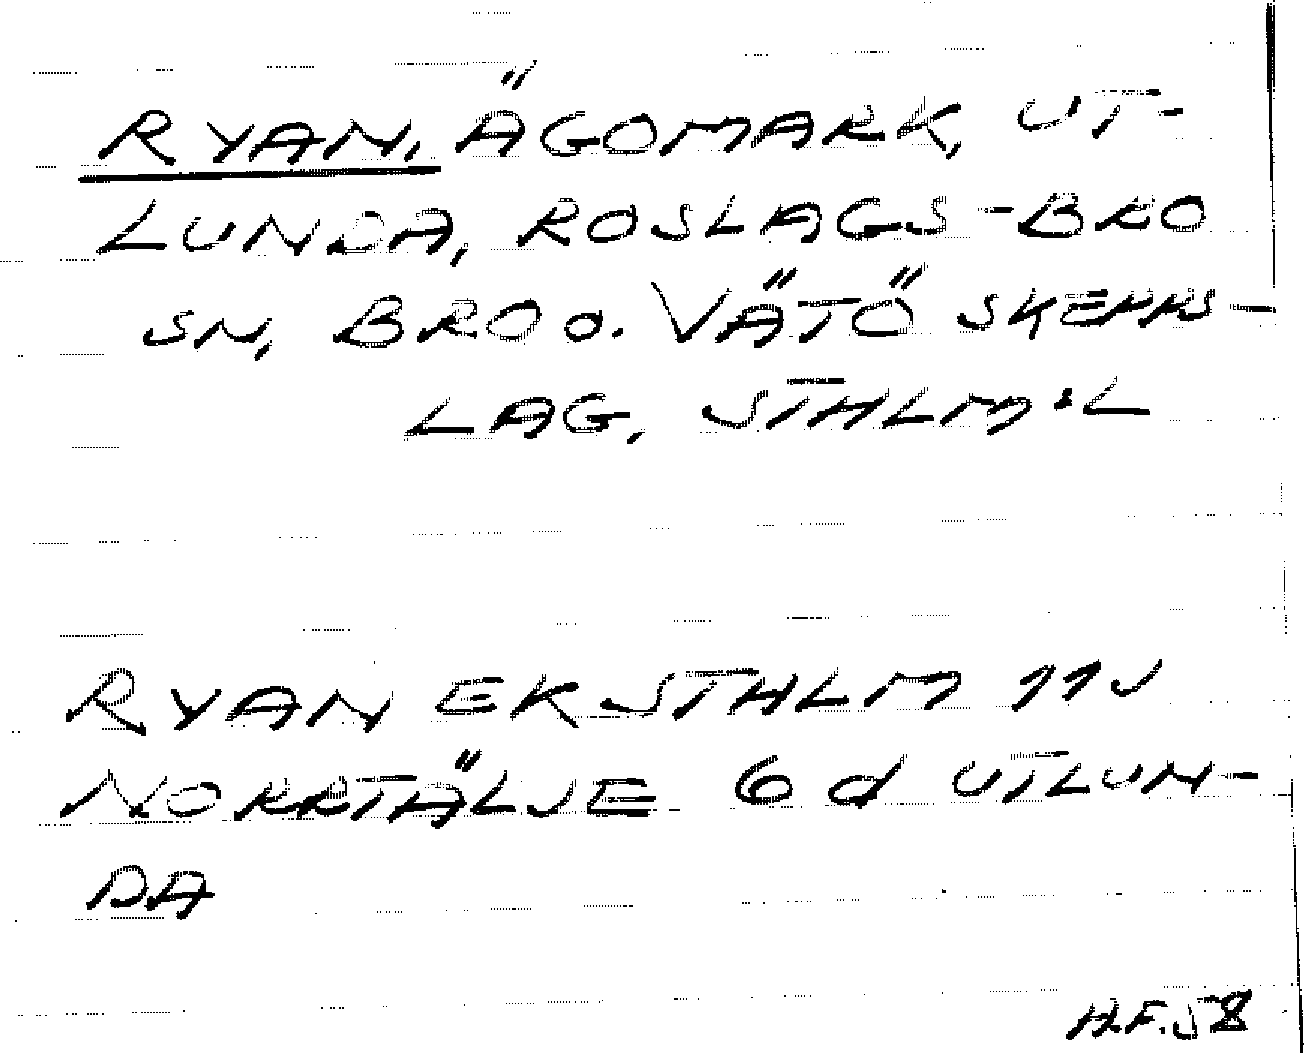 RYAN, ÄGOMARK, UT-
LUNDA, ROSLAGS-BRO
SN, BRO o. VÄTÖ SKEPPS-
LAG, STHLM:L
RYAN EK STHLM 11J
NORRTÄLJE 6d UTLUN-
DA
H.F.58